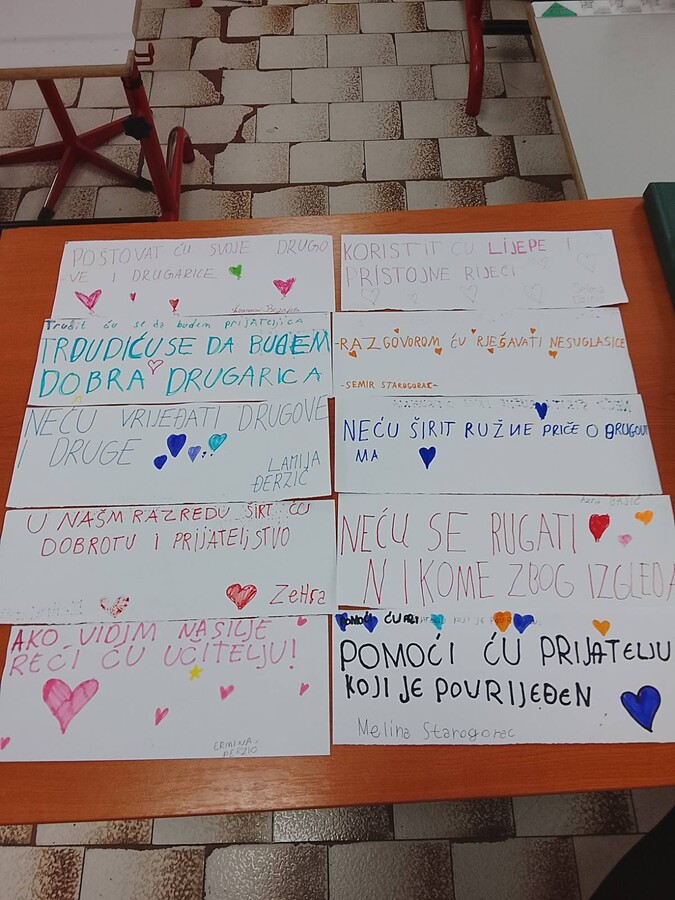 POŠTOVAT ĆU SVOJE DRUGO
-VE I DRUGARICE
KORISTIT ĆU LIJEPE I
PRISTOJNE RIJEČI
Trudit ću se da budem prijateljica
TRDUDIĆU SE DA BUDEM
DOBRA DRUGARICA
-RAZGOVOROM ĆU RJEŠAVATI NESUGLASICE
-SEMIR STAROGORAC-
NEĆU VRIJEĐATI DRUGOVE
I DRUGE
LAMIJA
ĐERZIĆ
NEĆU ŠIRIT RUŽNE PRIČE O DRUGOVI
MA
U NAŠM RAZREDU ŠIRT ĆU
DOBROTU I PRIJATELJSTVO
ZeHra
BAŠIĆ
NEĆU SE RUGATI
NIKOME ZBOG IZGLEDA
AKO VIDIM NASILJE
REĆI ĆU UČITELJU!
ERMINA
ĐERZIĆ
POMOĆI ĆU PRI KOJI JE
POMOĆI ĆU PRIJATELJU
KOJI JE POVRIJEĐEN
Melina Starogorac